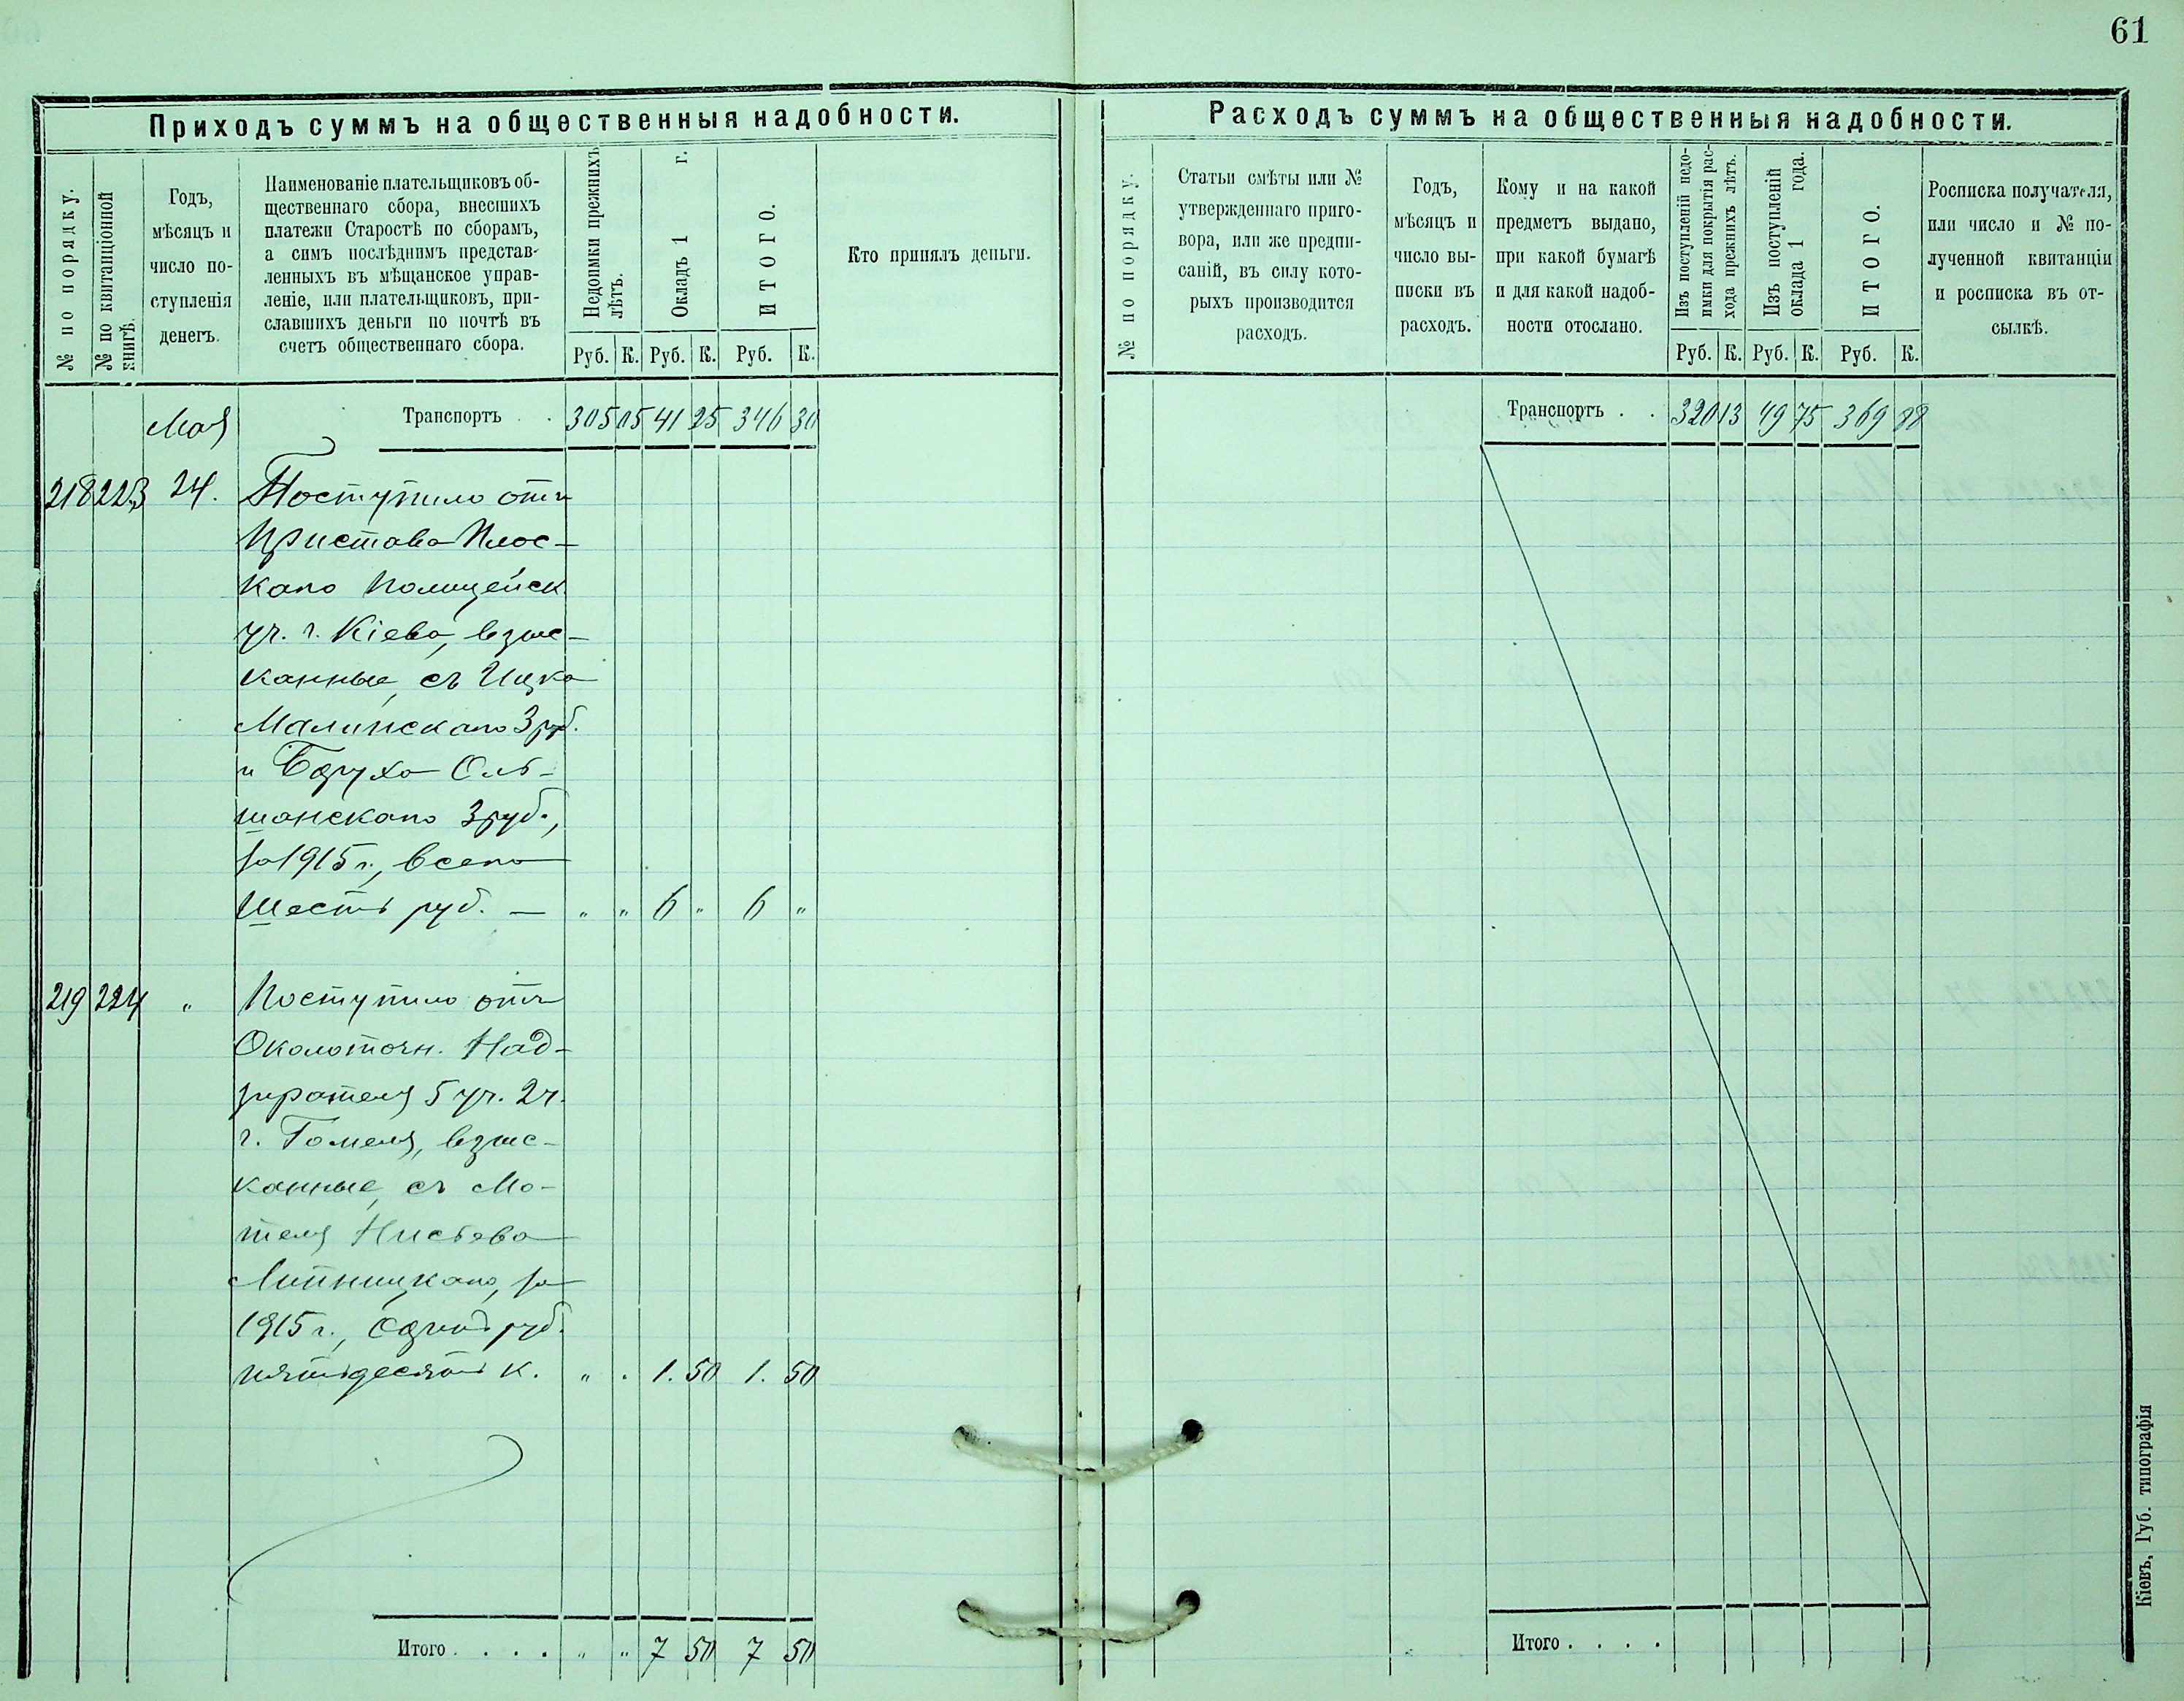 61
Приходъ суммъ на общественныя надобности.
№ по порядку.
№ по квитанціонной
книгѣ.
Годъ,
мѣсяцъ и
число по-
ступленія
денегъ.
Наименованіе плательщиковъ об-
щественнаго сбора, внесшихъ
платежи Старостѣ по сборамъ,
а симъ послѣднимъ представ-
ленныхъ въ мѣщанское управ-
леніе, или плательщиковъ, при-
славшихъ деньги по почтѣ въ
счетъ общественнаго сбора.
Недоимки прежнихъ
лѣтъ.
Окладъ 1 г.
ИТОГО.
Руб. К. Руб. К. Руб. К.
Кто принялъ деньги.
Мая Транспортъ . . 305 05 41 25 346 30
218 223 24. Поступило отъ
Пристава Плос-
каго Полицейск.
уч. г. Кіева, взыс-
канные съ Ицка
Малинскаго 3 руб.
и Боруха Оль-
шанскаго 3 руб.,
за 1915 г., всего
Шесть руб. — " " 6 " 6 "
219 224 " Поступило отъ
Околоточн. Над-
зирателя 5 уч. 2 ч.
г. Гомеля, взыс-
канные съ Мо-
теля
Липницкаго, за
1915 г., Одинъ руб.
пятьдесятъ к. " . 1. 50 1. 50
Итого . . . . " " 7 50 7 50
Расходъ суммъ на общественныя надобности.
№ по порядку.
Статьи смѣты или №
утвержденнаго приго-
вора, или же предпи-
саній, въ силу кото-
рыхъ производится
расходъ.
Годъ,
мѣсяцъ и
число вы-
писки въ
расходъ.
Кому и на какой
предметъ выдано,
при какой бумагѣ
и для какой надоб-
ности отослано.
Изъ поступленій недо-
имки для покрытія рас-
хода прежнихъ лѣтъ.
Изъ поступленій
оклада 1 года.
ИТОГО.
Руб. К. Руб. К. Руб. К.
Росписка получателя,
или число и № по-
лученной квитанціи
и росписка въ от-
сылкѣ.
Транспортъ . . 320 13 49 75 369 88
Итого . . . .
Кіевъ, Губ. типографія